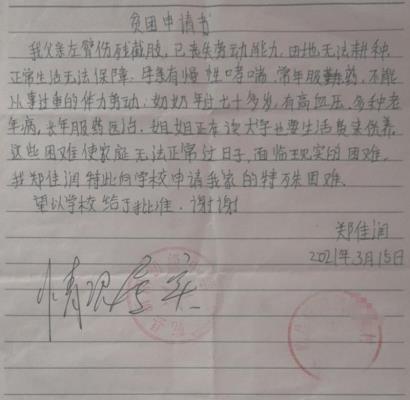 贫困申请书
我父亲左臂伤残截肢,已丧失劳动能力,田地无法耕种
正常生活无法保障。母亲有慢性哮喘,常年服药,不能
从事过重的体力劳动;奶奶年过七十多岁,有高血压,多种老
年病,长年服药医治。姐姐正在读大学也要生活费来供养。
这些困难使家庭无法正常过日子,面临现实的困难。
我郑佳润特此向学校申请我家的特殊困难、
望以学校给予批准。谢谢
郑佳润
2021年3月15日
情况属实